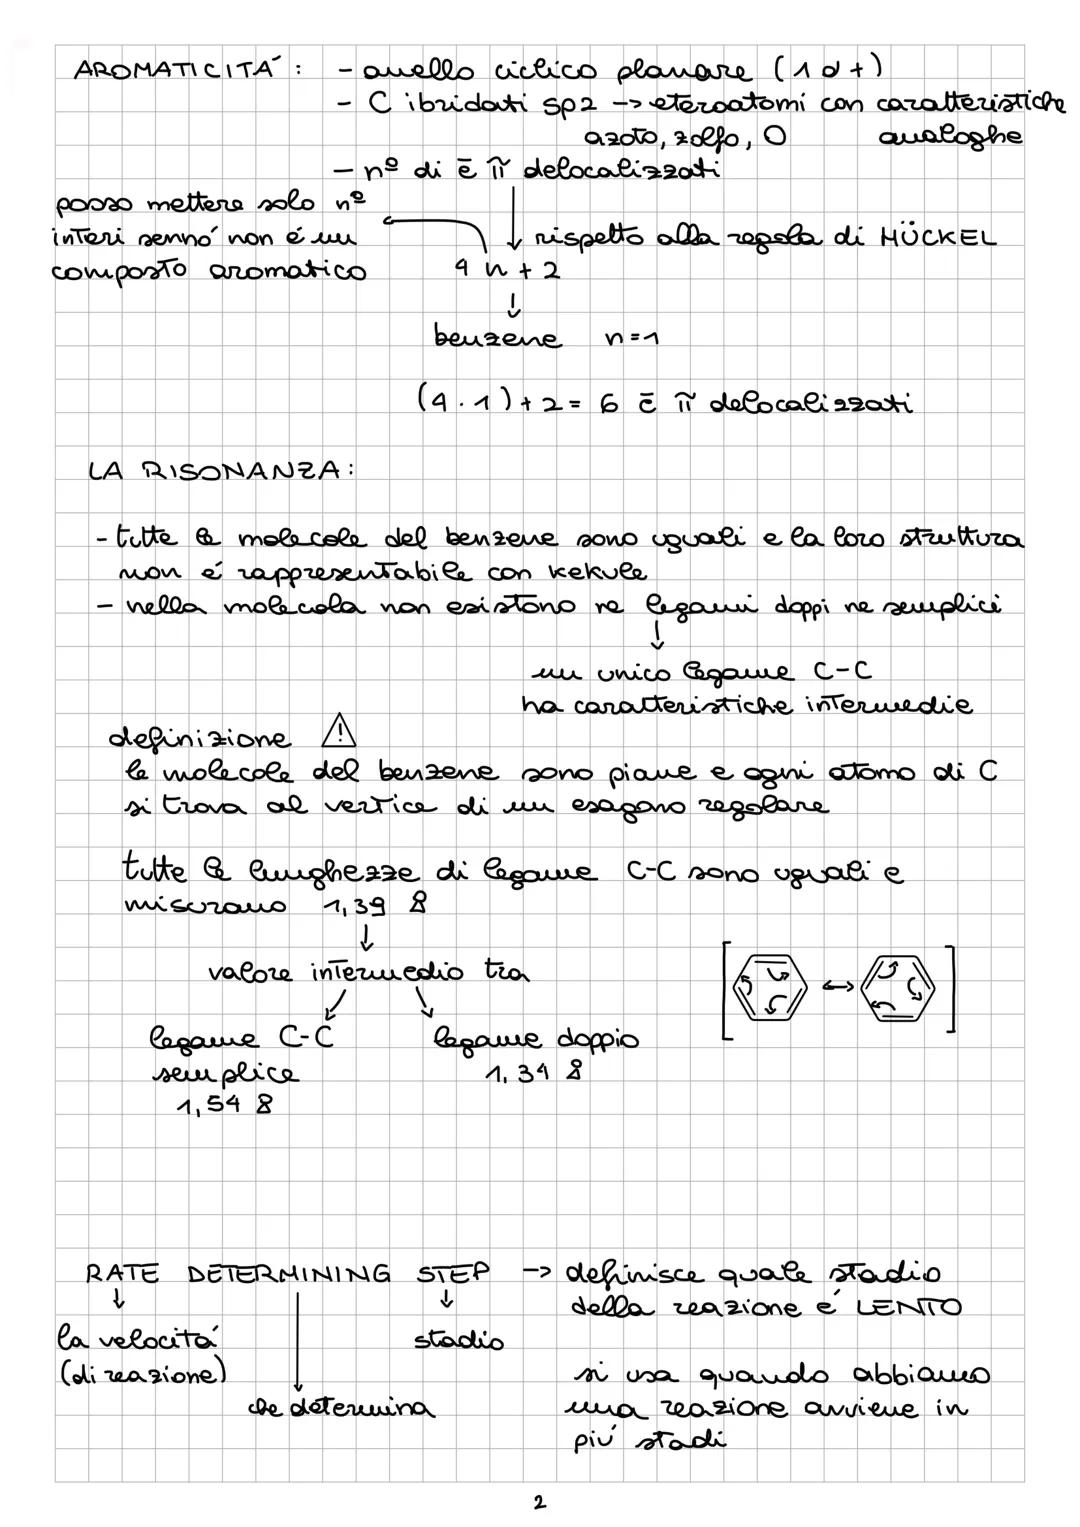 AROMATICITÁ : - anello ciclico planare (1 o +)
- C ibridati sp2 -> eteroatomi con caratteristiche
azoto, zolfo, O analoghe
- nº di ē π delocalizzati
posso mettere solo nº
interi sennó non é un
composto aromatico
rispetto alla regola di HÜCKEL
4 n + 2
↓
benzene n=1
(4 . 1) + 2 = 6 ē π delocalizzati
LA RISONANZA:
- tutte le molecole del benzene sono uguali e la loro struttura
non é rappresentabile con kekule
- nella molecola non esistono ne legami doppi ne semplici
↓
un unico legame C-C
ha caratteristiche intermedie
definizione ⚠
le molecole del benzene sono piane e ogni atomo di C
si trova al vertice di un esagono regolare
tutte le lunghezze di legame C-C sono uguali e
misurano 1,39 Å
↓
valore intermedio tra
legame C-C
semplice
1,54 Å
legame doppio
1,34 Å
RATE DETERMINING STEP -> definisce quale stadio
della reazione é LENTO
la velocitá
(di reazione)
che determina
stadio
si usa quando abbiamo
una reazione avviene in
piú stadi
2